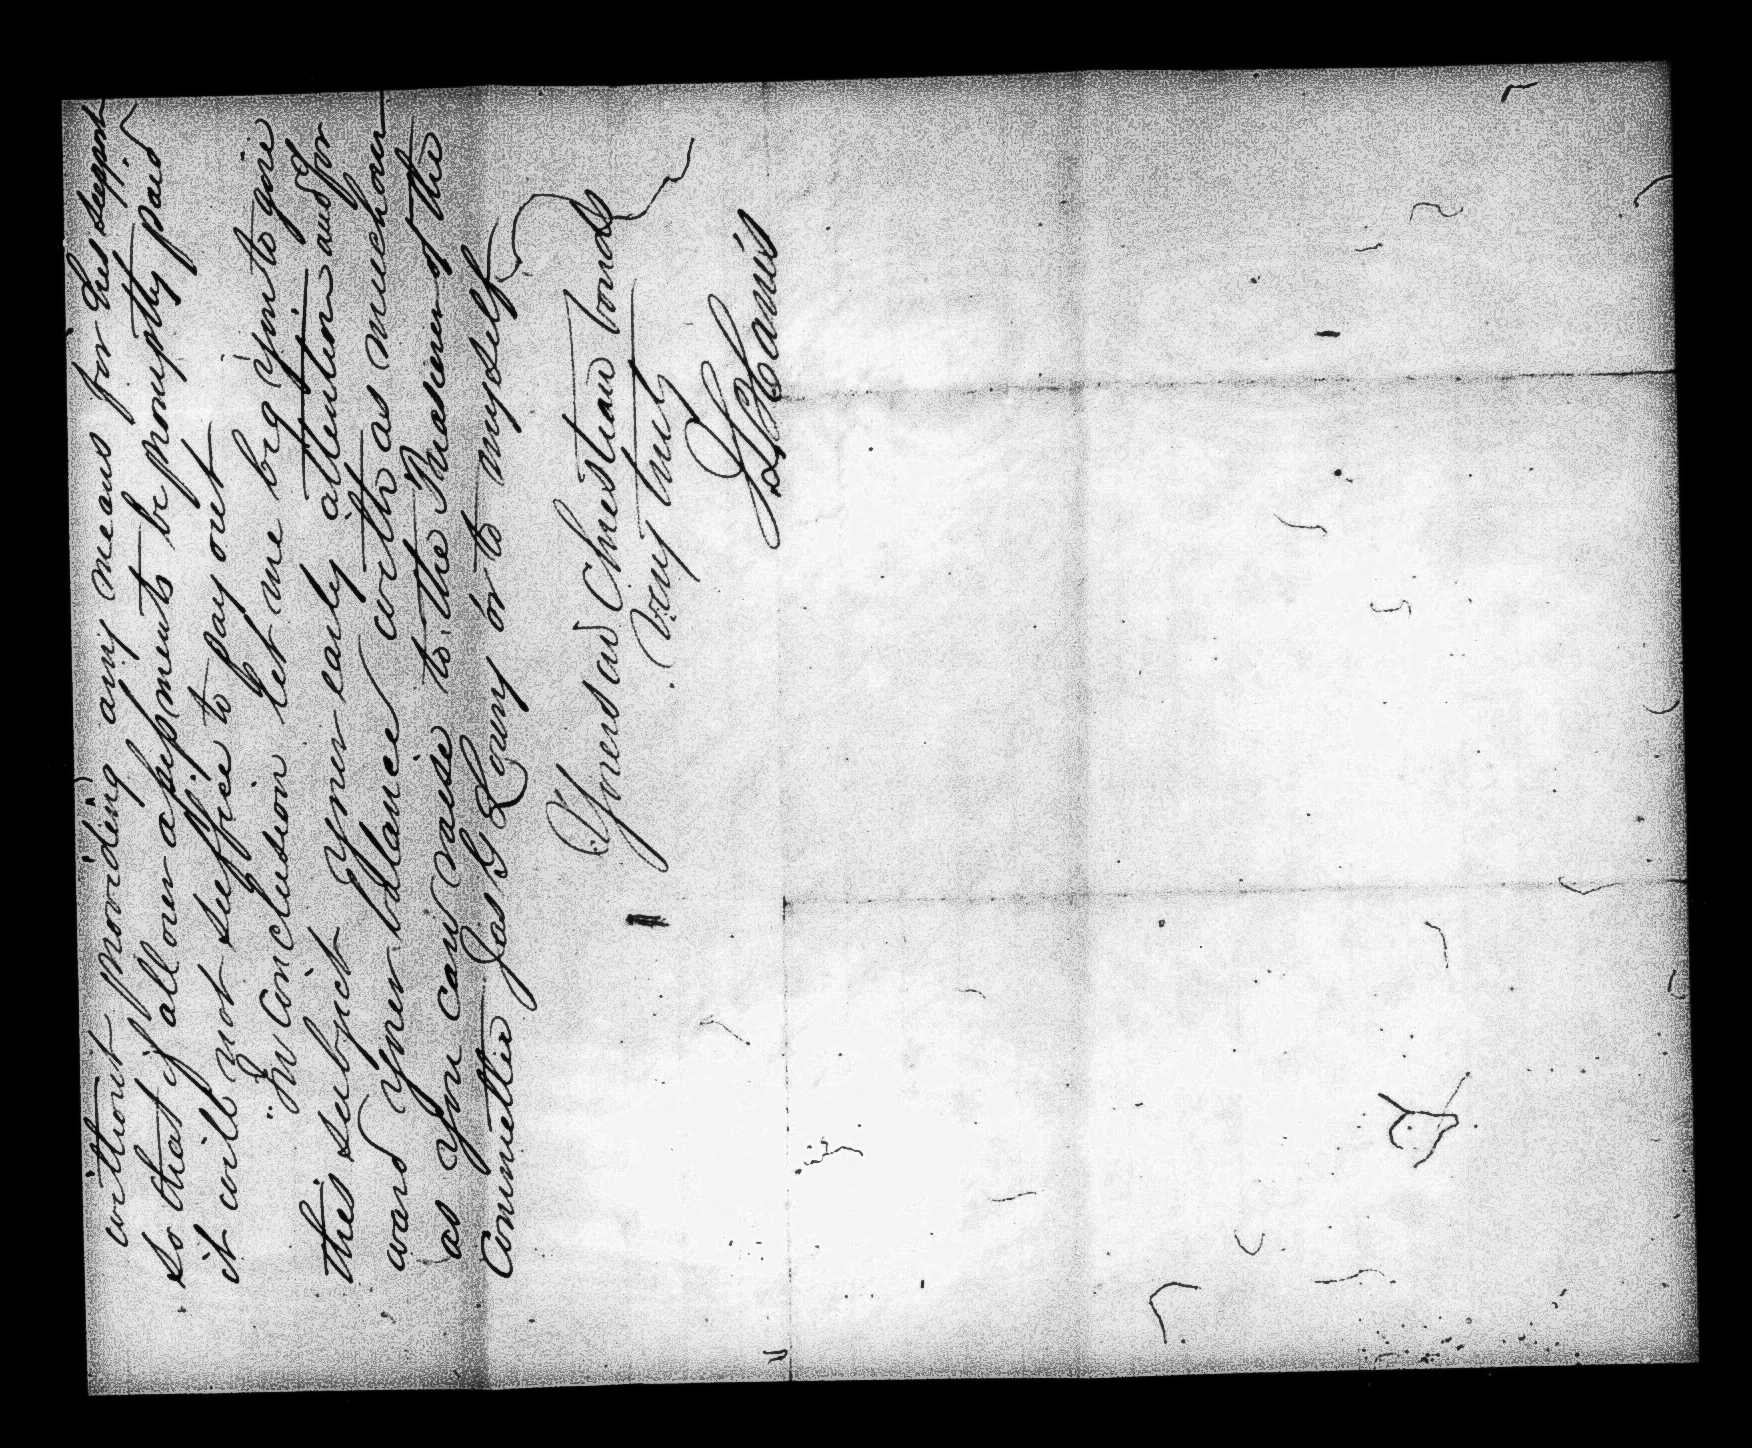 without providing any means for his support
so that if all our assessments be promptly paid
it will not suffice to pay out
"In conclusion let me beg you to give
this subject your early attention and for
ward your balance with as much our
as you can raise to the Treasurer of the
Committee Jas G Lowry or to myself
Yours in Christian bonds
Very truly
S Harris